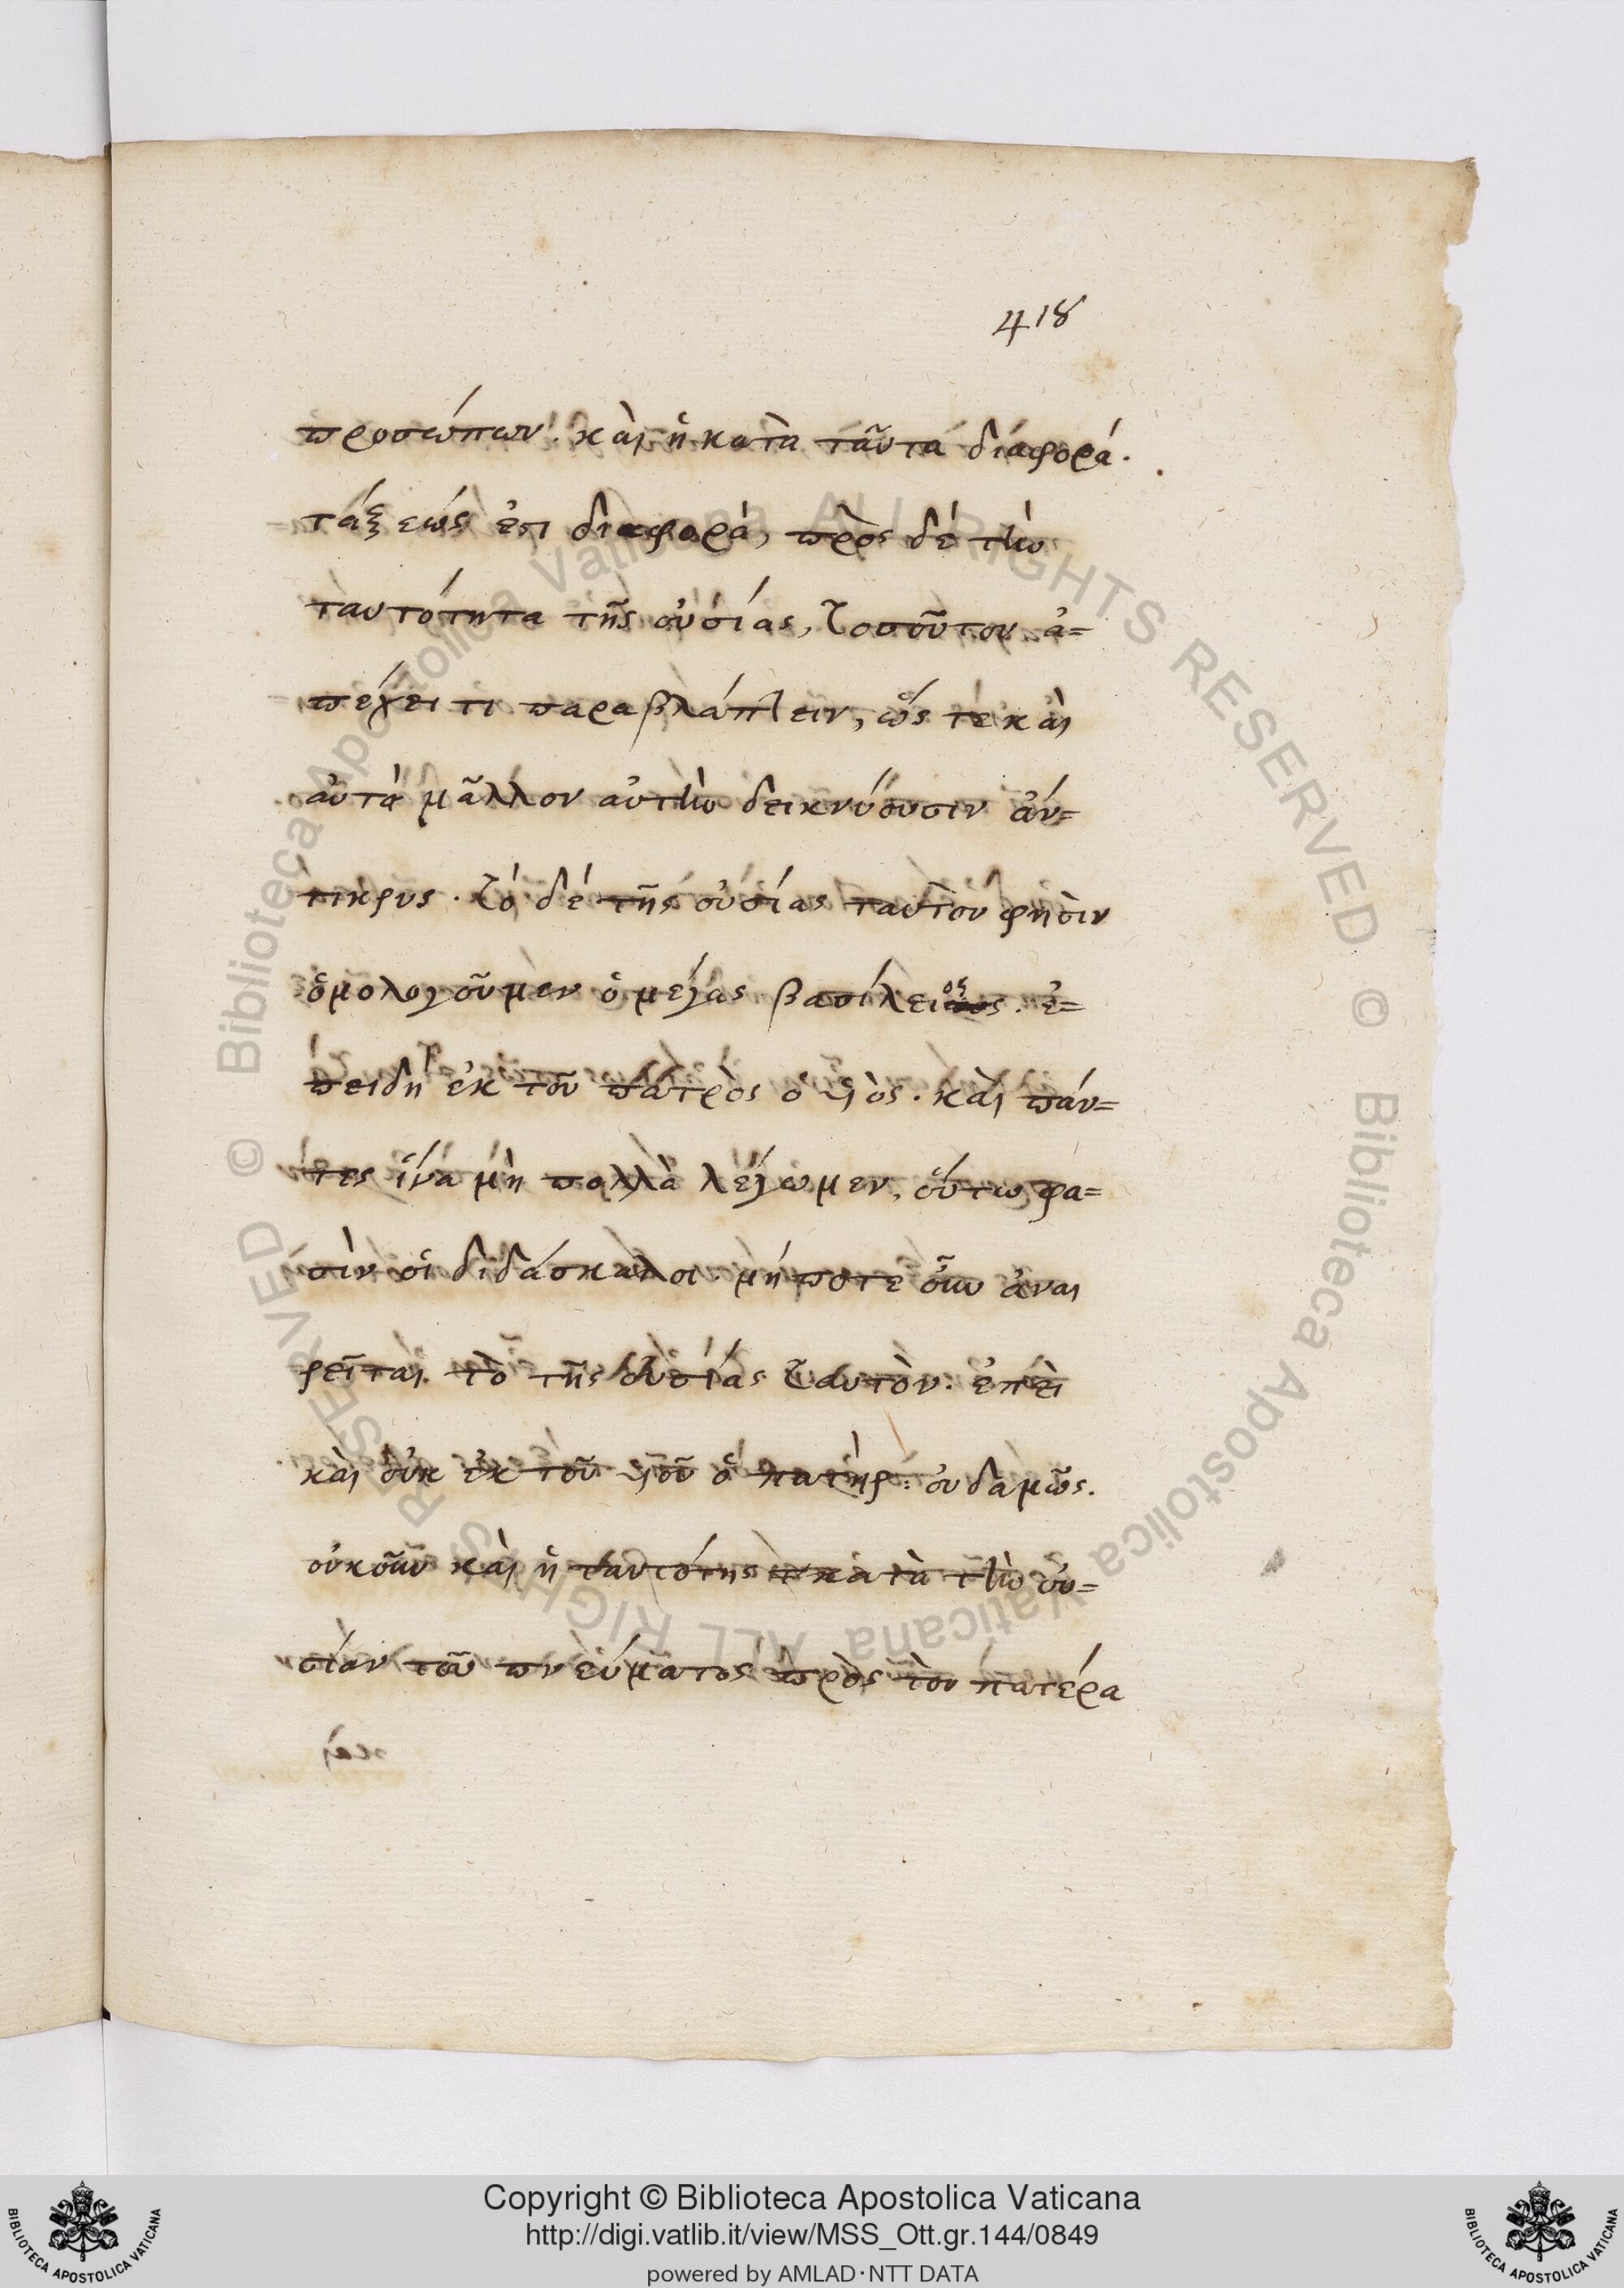 418
προσώπων. καὶ ἡ κατὰ ταῦτα διαφορά.
τάξεώς ἐστι διαφορὰ, πρὸς δὲ τὴν
ταυτότητα τῆς οὐσίας, τοσοῦτον ἀ=
πέχει τι παραβλάπτειν, ὥς τε καὶ
αὐτὰ μᾶλλον αὐτὴν δεικνύουσιν ἄν=
τικρυς. τὸ δὲ τῆς οὐσίας ταυτὸν φησὶν
ὁμολογοῦμεν ὁ μέγας βασίλειος. ἐ=
πειδὴ ἐκ τοῦ πατρὸς ὁ υἱὸς. καὶ πάν=
τες ἵνα μὴ πολλὰ λέγωμεν, οὕτω φα=
σὶν οἱ διδάσκαλοι. μήποτε οὖν ἀναι
ρεῖται τὸ τῆς οὐσίας ταυτὸν. ἐπεὶ
καὶ οὐκ ἐκ τοῦ υἱοῦ ὁ πατήρ. οὐδαμῶς.
οὐκοῦν καὶ ἡ ταυτότης κατὰ τὴν οὐ=
σίαν τοῦ πνεύματος πρὸς τὸν πατέρα
Copyright © Biblioteca Apostolica Vaticana
http://digi.vatlib.it/view/MSS_Ott.gr.144/0849
powered by AMLAD·NTT DATA
BIBLIOTECA APOSTOLICA VATICANA
BIBLIOTECA APOSTOLICA VATICANA
© Biblioteca Apostolica Vaticana ALL RIGHTS RESERVED
© Biblioteca Apostolica Vaticana ALL RIGHTS RESERVED